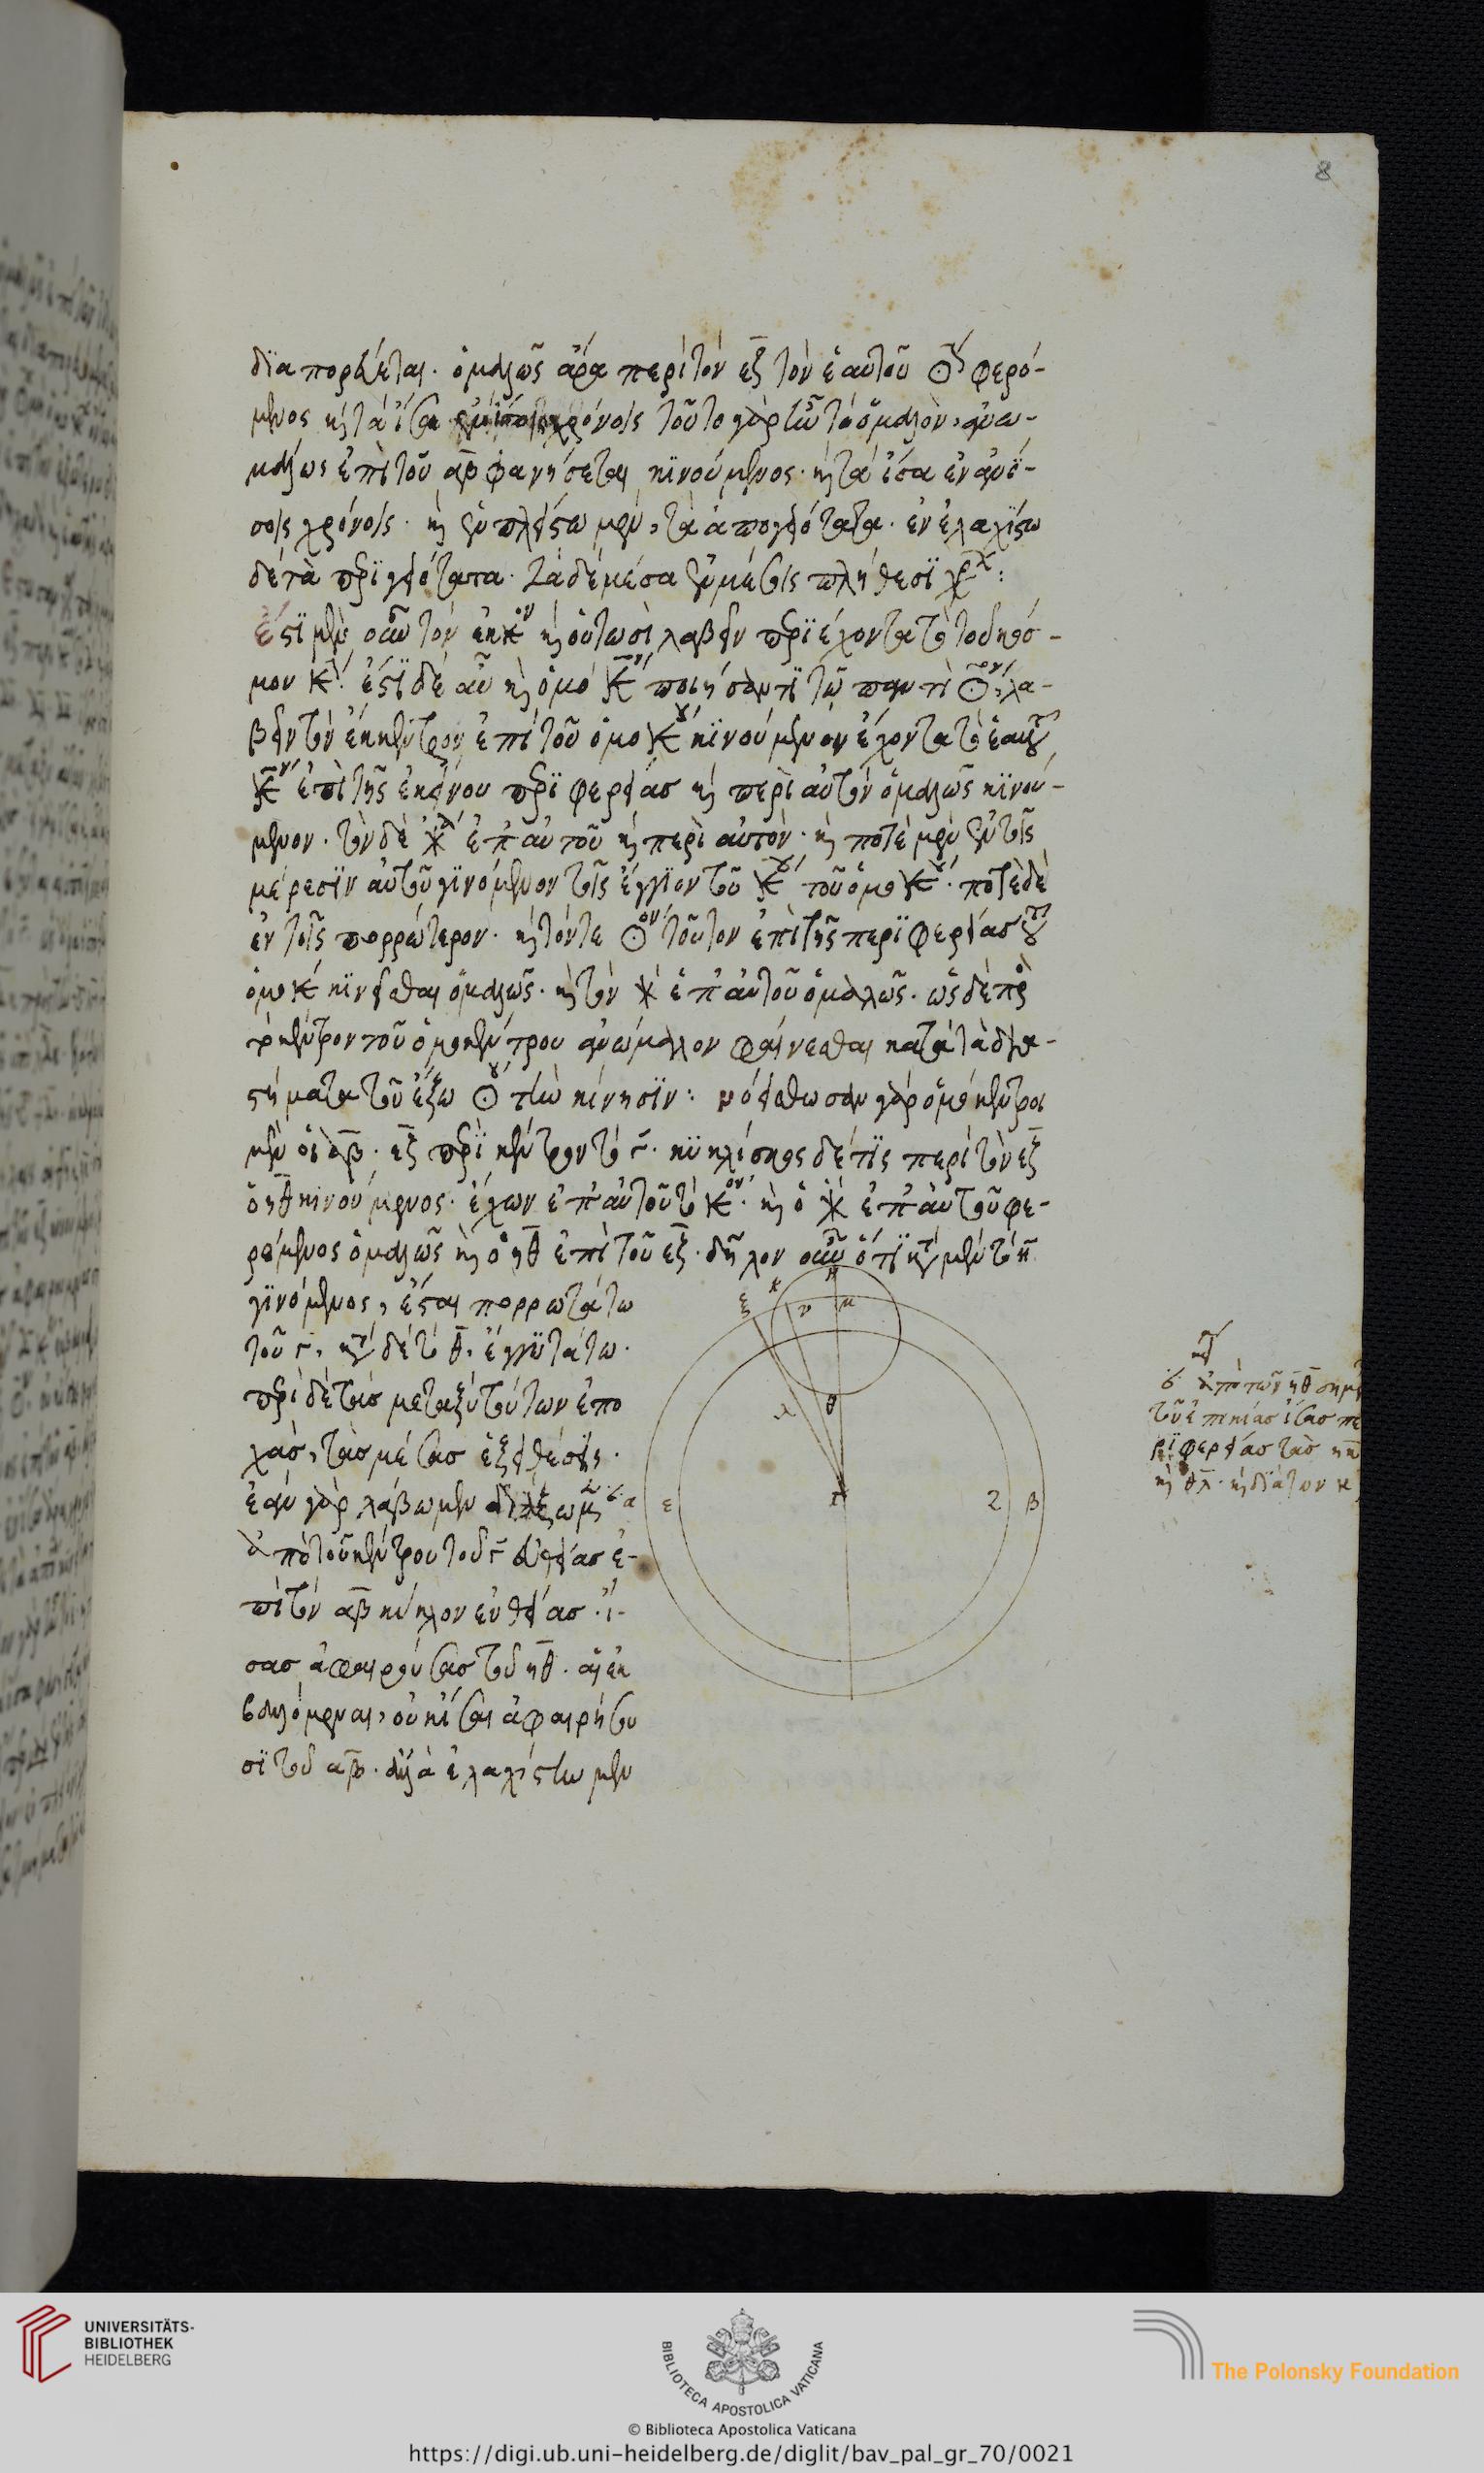 8
διαπορεύεται· ὁμαλῶς ἄρα περὶ τὸν εζ τὸν ἑαυτοῦ ☉ φερό-
μενος καὶ τὰ ἴσα χρόνοις τοῦτο γὰρ ἦν τὸ ὁμαλὸν, ἀνω-
μάλως ἐπὶ τοῦ αβ φανήσεται κινούμενος· καὶ τὰ ἴσα ἐν ἀνί-
σοις χρόνοις· καὶ ἐν πλείστω μὲν, τὰ ἀπογειότατα· ἐν ἐλαχίστω
δὲ τὰ περιγειότατα· τὰ δὲ μέσα ἐν μέσοις πλήθεσι
ἔστι μὲν οὖν τὸν ἐκκ καὶ οὑτωσὶ λαβεῖν περιέχοντα τὸ τοῦ κόσ-
μου κ· ἔστι δὲ αὖ καὶ ὁμόκ ποιήσαντι τῶ παντὶ ☉, λα-
βεῖν τὸν ἔκκεντρον ἐπὶ τοῦ ὁμοκ κινούμενον ἔχοντα τὸ ἑαυτοῦ
κ ἐπὶ τῆς ἐκείνου περιφερείας καὶ περὶ αὐτὸν ὁμαλῶς κινού-
μενον· τὸν δὲ ἐπ' αὐτοῦ καὶ περὶ αὐτὸν· καὶ ποτὲ μὲν ἐν τοῖς
μέρεσιν αὐτοῦ γινόμενον τοῖς ἔγγιον τοῦ κ τοῦ ὁμοκ· ποτὲ δὲ
ἐν τοῖς πορρώτερον· καὶ τόν τε ☉ τοῦτον ἐπὶ τῆς περιφερείας τοῦ
ὁμοκ κινεῖσθαι ὁμαλῶς· καὶ τὸν ἐπ' αὐτοῦ ὁμαλῶς· ὡς δὲ πρὸς
τὸ κέντρον τοῦ ὁμοκέντρου ἀνώμαλον φαίνεσθαι κατὰ τὰ δια-
στήματα τοῦ ἔξω ☉ τὴν κίνησιν: νοείσθωσαν γὰρ ὁμόκεντροι
μὲν οἱ αβ· εζ περὶ κέντρον τὸ γ· κυκλίσκος δέ τις περὶ τὸν εζ
ὁ ηθ κινούμενος· ἔχων ἐπ' αὐτοῦ τὸ κ· καὶ ὁ ἐπ' αὐτοῦ φε-
ρόμενος ὁμαλῶς καὶ ὁ ηθ ἐπὶ τοῦ εζ· δῆλον οὖν ὅτι κατὰ μὲν τὸ η
γινόμενος, ἔσται πορρωτάτω
τοῦ γ, κατὰ δὲ τὸ θ, ἐγγυτάτω·
περὶ δὲ τὰς μεταξὺ τούτων ἐπο
χὰς, τὰς μέσας ἕξει θέσεις·
ἐὰν γὰρ λάβωμεν
ἀπὸ τοῦ κέντρου τοῦ γ εὐθείας ἐ-
πὶ τὸν αβ κύκλον εὐθείας· ἴ-
σας ἀφαιρούσας τοῦ ηθ· αἱ ἐκ
βαλόμεναι, οὐκ ἴσα ἀφαιρήσου
σι τοῦ αβ· ἀλλὰ ἐλαχίστω μὲν
ξ κ ν η μ
λ θ
α ε γ ζ β
ἀπὸ τῶν ηθ σημ
τοῦ ἐπικ ίας ἴσας πε
ριφερείας τὰς ηκ
καὶ θλ· καὶ διὰ τῶν κ
UNIVERSITÄTS-
BIBLIOTHEK
HEIDELBERG
BIBLIOTECA APOSTOLICA VATICANA
The Polonsky Foundation
© Biblioteca Apostolica Vaticana
https://digi.ub.uni-heidelberg.de/diglit/bav_pal_gr_70/0021